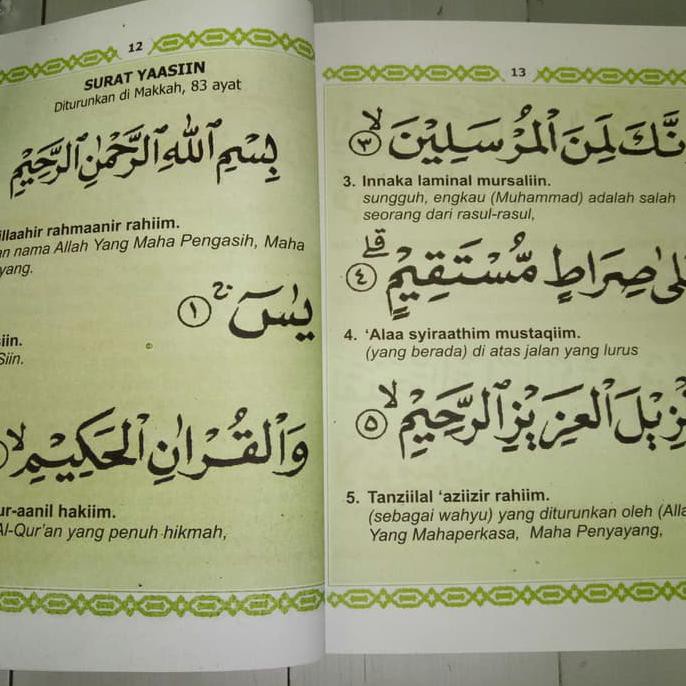 12
SURAT YAASIIN
Diturunkan di Makkah, 83 ayat
بِسْمِ اللّٰهِ الرَّحْمٰنِ الرَّحِيْمِ
illaahir rahmaanir rahiim.
nama Allah Yang Maha Pengasih, Maha
yang.
يٰسۤ ۚ ١
siin.
Siin.
وَالْقُرْاٰنِ الْحَكِيْمِ ۙ
ur-aanil hakiim.
Al-Qur'an yang penuh hikmah,
13
نَّكَ لَمِنَ الْمُرْسَلِيْنَ ۙ ٣
3. Innaka laminal mursaliin.
sungguh, engkau (Muhammad) adalah salah
seorang dari rasul-rasul,
لٰى صِرَاطٍ مُّسْتَقِيْمٍ ۗ ٤
4. ‘Alaa syiraathim mustaqiim.
(yang berada) di atas jalan yang lurus
زِيْلَ الْعَزِيْزِ الرَّحِيْمِ ۙ ٥
5. Tanziilal ‘aziizir rahiim.
(sebagai wahyu) yang diturunkan oleh (Alla
Yang Mahaperkasa, Maha Penyayang,